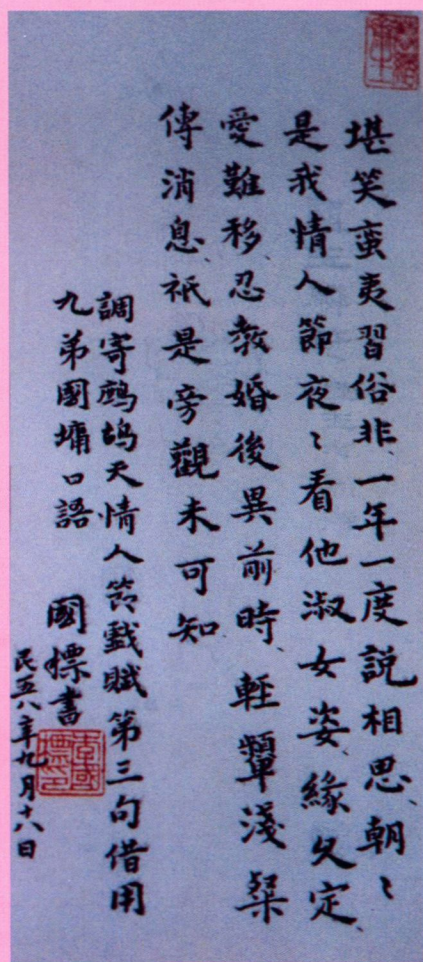 堪笑蛮夷習俗非、一年一度說相思、朝〻
是我情人節夜〻看他淑女姿、緣久定、
愛難移、忍教婚後異前時、輕顰淺粲
傳消息、祇是旁觀未可知、
調寄鷓鴣天情人節戲賦第三句借用
九弟國墉口語 國標書
民五八年九月十八日